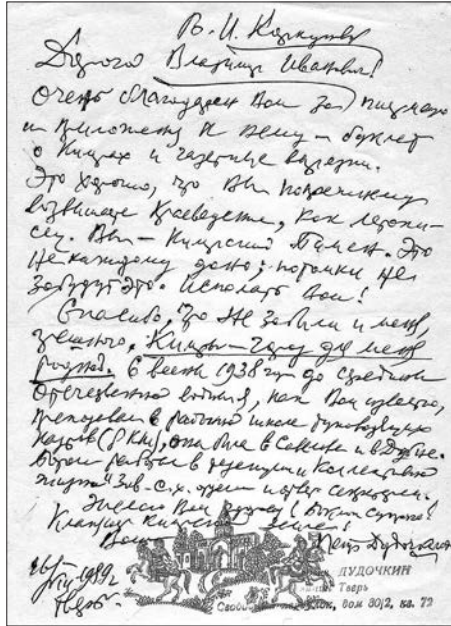 В. И. Коркунову
Дорогой Владимир Иванович!
Очень благодарен Вам за письмо
и приложения к нему – буклет
о Кимрах и газетные вырезки.
Это хорошо, что Вы по-прежнему
возвышаете краеведение, как летопи-
сец. Вы – Кимрский Пимен. Это
не каждому дано; потомки не
забудут это. Исполать Вам!
Спасибо, что не забыли и меня,
грешного. Кимры – город для меня
родной. С весны 1938 года до средины
Отечественной войны я, как Вам известно,
преподавал в районной школе руководящих
кадров (8 км), она была в Савелове и в Дубне.
Потом работал в редакции «Коллективной
жизни» зав. с.-х. отделом и отв. секретарём.
Желаю Вам здоровья
Кланяюсь Кимрской земле!
Ваш Петр Дудочкин
1989 г.
Тверь.
ДУДОЧКИН
Тверь
дом 30/2, кв. 72